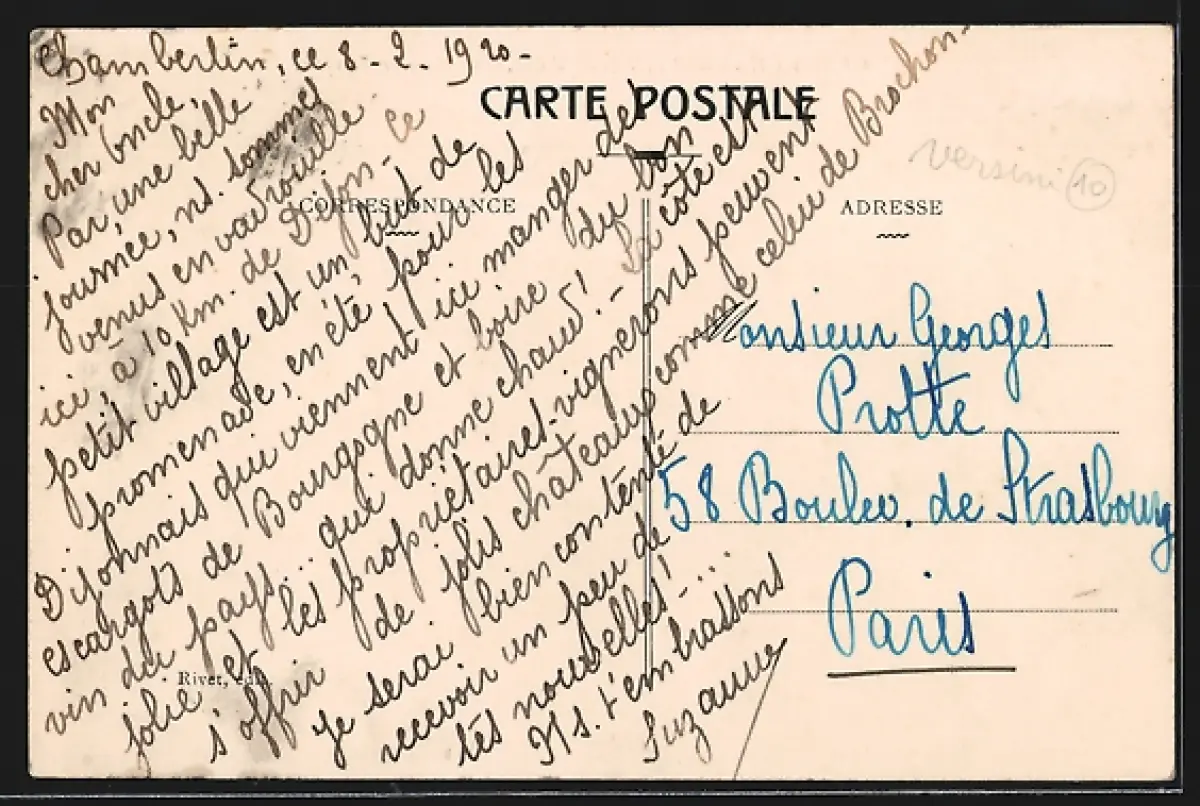 Chambertin, ce 8-2-1920-
CARTE POSTALE
CORRESPONDANCE
ADRESSE
versini 10
Mon
cher oncle,
Par une belle
journée, ns. sommes
venus en vadrouille
ici, à 10 km. de Dijon - ce
petit village est un but de
promenade, en été, pour les
Dijonnais qui viennent ici manger des
escargots de Bourgogne et boire du bon
vin du pays... qui donne chaud! - La côte est
jolie, et les propriétaires-vignerons peuvent
s'offrir de jolis châteaux comme celui de Brochon-
je serai bien contente de
recevoir un peu de
tes nouvelles!...
Ns. t'embrassons
Suzanne
Rivet, édit.
Monsieur Georges
Protte
58 Boulev. de Strasbourg
Paris